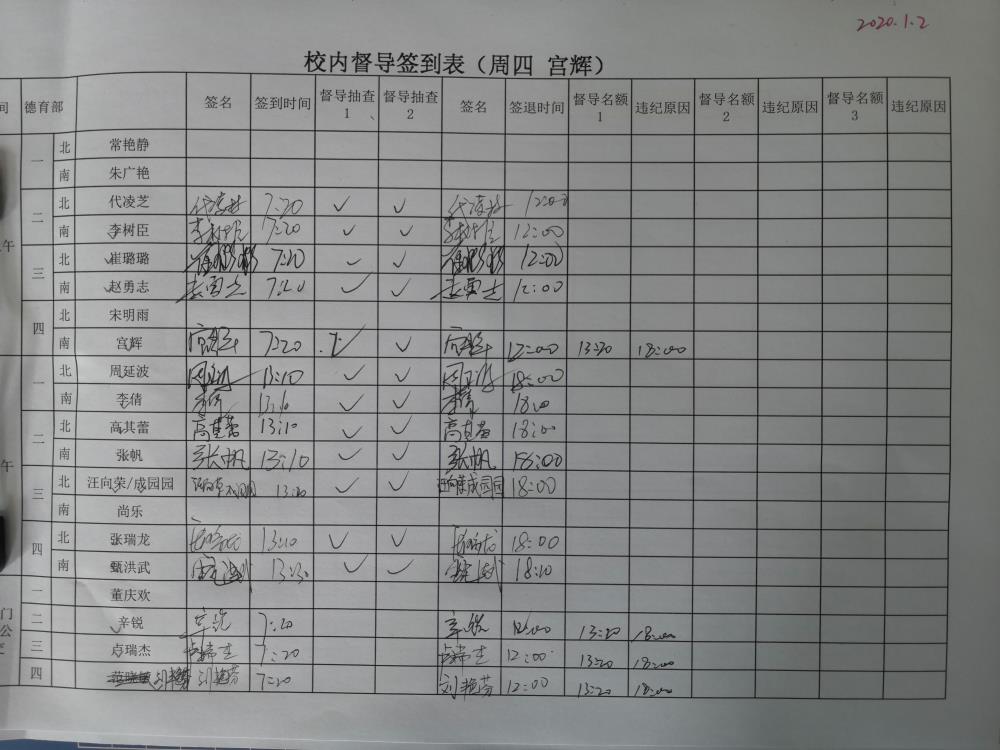 2020.1.2
校内督导签到表（周四 宫辉）
间 德育部 签名 签到时间 督导抽查1 督导抽查2 签名 签退时间 督导名额1 违纪原因 督导名额2 违纪原因 督导名额3 违纪原因
一 北 常艳静
南 朱广艳
二 北 代凌芝 7:20 ✓ ✓ 12:00
午 南 李树臣 李树臣 7:20 ✓ ✓ 李树臣 12:00
三 北 崔璐璐 7:20 ✓ ✓ 12:00
南 赵勇志 7:20 ✓ ✓ 12:00
四 北 宋明雨
南 宫辉 宫辉 7:20 ✓ ✓ 宫辉 12:00 13:20 18:00
一 北 周延波 周延波 13:10 ✓ ✓ 周延波 18:00
南 李倩 李倩 13:10 ✓ ✓ 李倩 18:00
二 北 高其蕾 高其蕾 13:10 ✓ ✓ 高其蕾 18:00
午 南 张帆 张帆 13:10 ✓ ✓ 张帆 18:00
三 北 汪向荣/成园园 13:20 ✓ ✓ 汪向荣成园园 18:00
南 尚乐
四 北 张瑞龙 13:10 ✓ ✓ 18:00
南 甄洪武 13:30 ✓ ✓ 18:10
一 董庆欢
门 二 辛锐 辛锐 7:20 辛锐 12:00 13:20 18:00
公 三 卢瑞杰 7:20 12:00 13:20 18:00
四 刘艳芬 刘艳芬 7:20 刘艳芬 12:00 13:20 18:00